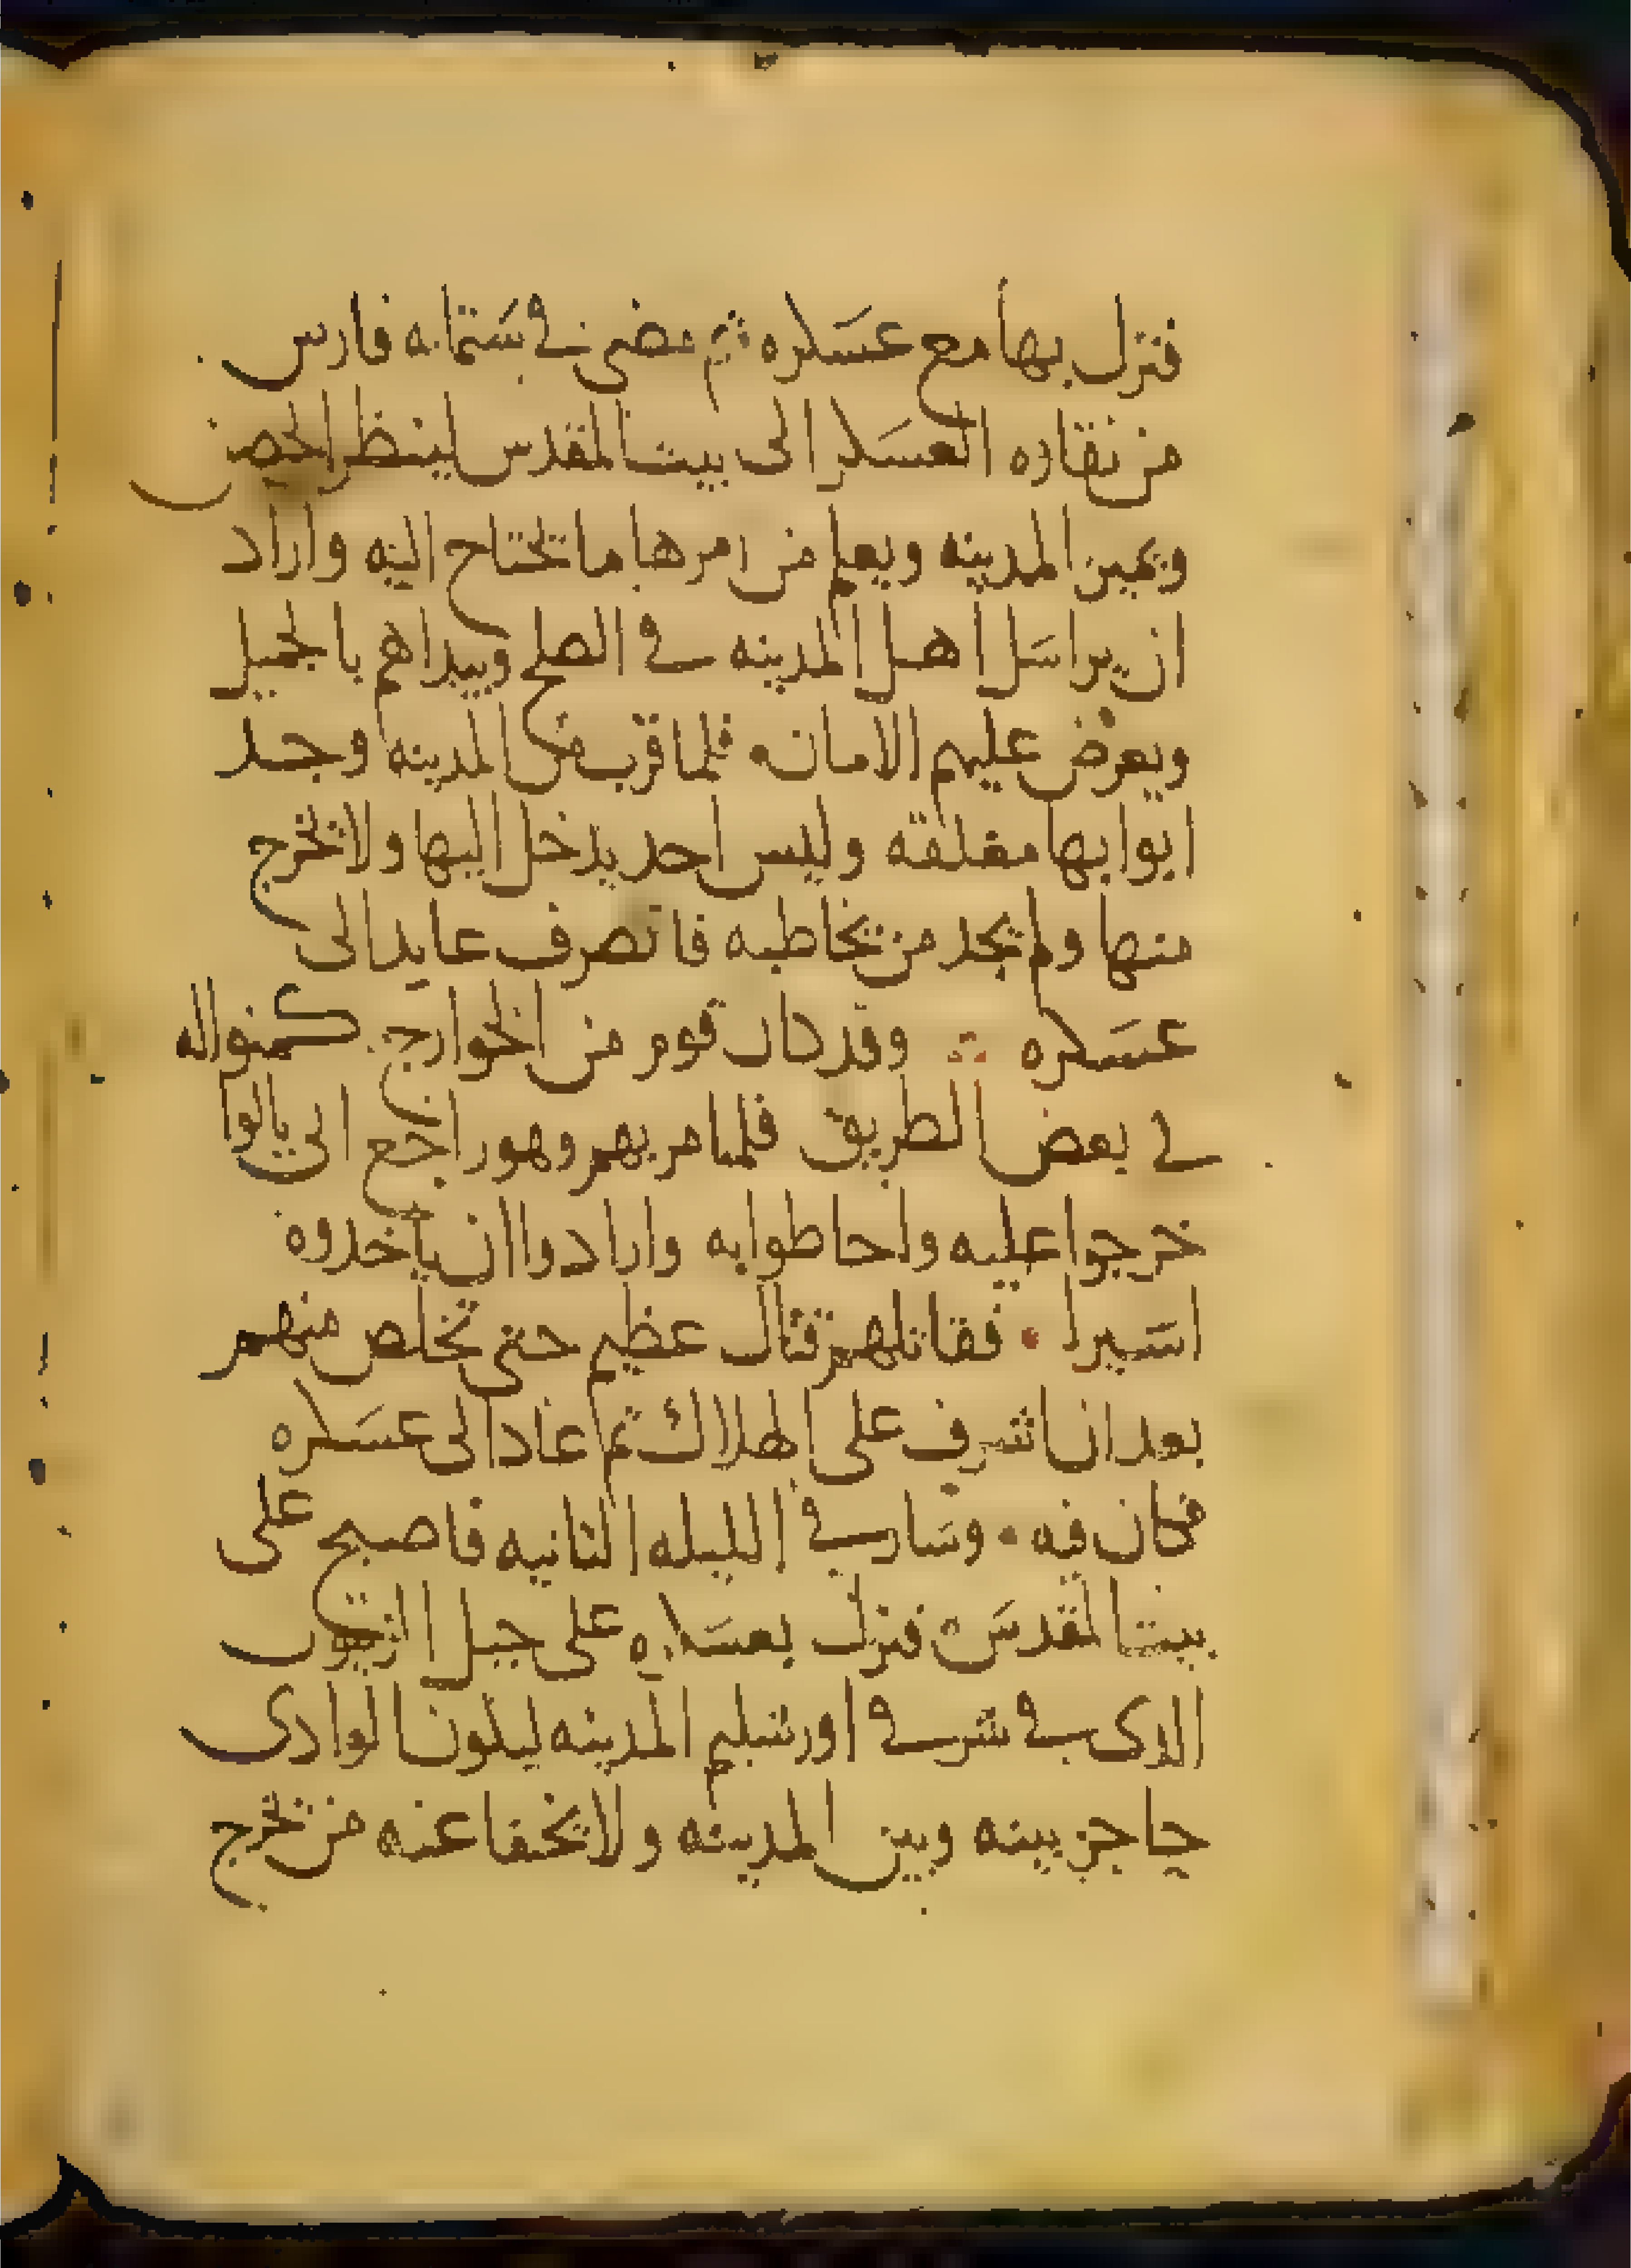 فنزل بها مع عسكره ثم مضى في ستمايه فارس
من نقاره العسكر الى بيت المقدس لينظر الحصن
ويميز المدينه ويعلم من امرها ما يحتاج اليه واراد
ان يراسل اهل المدينه في الصلح ويبداهم بالجميل
ويعرض عليهم الامان فلما قرب من المدينه وجد
ابوابها مغلقه وليس احد يدخل اليها ولا يخرج
منها ولم يجد من يخاطبه فانصرف عايدا الى
عسكره وقد كان قوم من الخوارج كمنوا له
في بعض الطريق فلما مر بهم وهو راجع
خرجوا عليه واحاطوا به وارادوا ان ياخدوه
اسيرا فقاتلهم قتال عظيم حتى تخلص منهم
بعد ان اشرف على الهلاك ثم عاد الى عسكره
فكان فيه وسار في الليله الثانيه فاصبح على
بيت المقدس فنزل بعسكره على جبل الزيتون
الدى في شرقي اورشليم المدينه ليكون الوادى
حاجز بينه وبين المدينه ولا يخفا عنه من يخرج